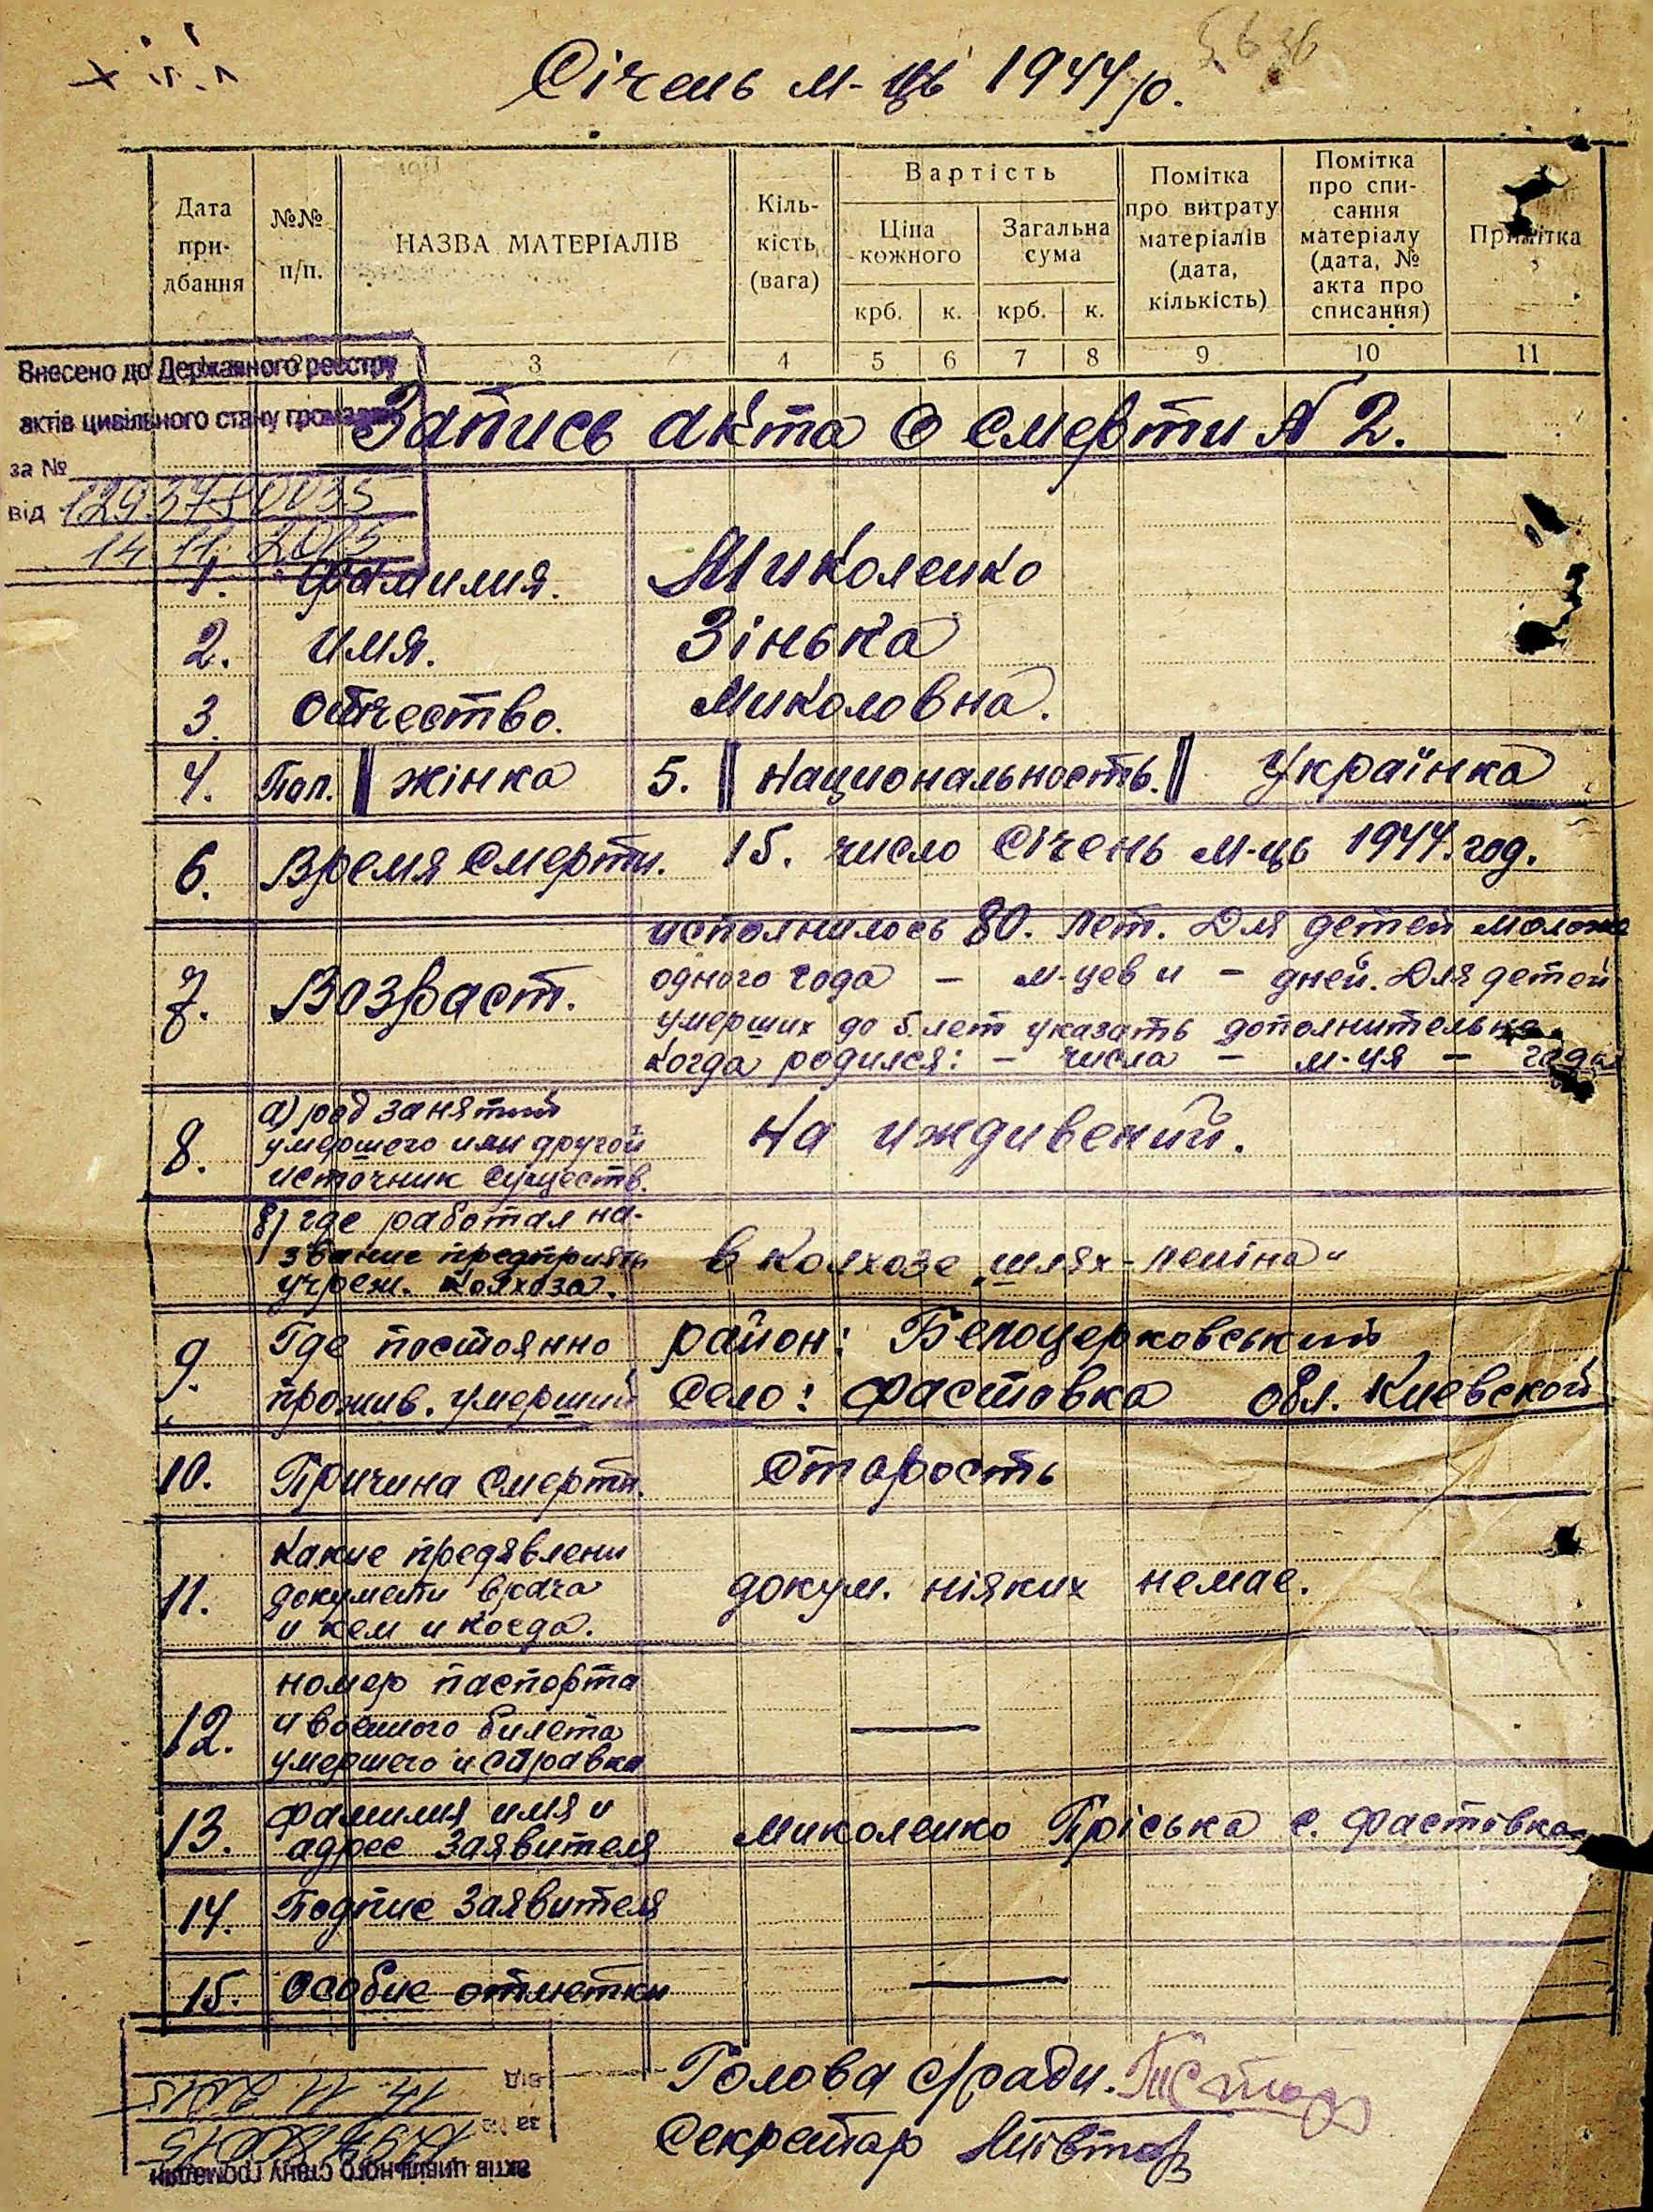 Січень м-ць 1944 р.
Дата при- дбання
№№ п/п.
НАЗВА МАТЕРІАЛІВ
Кіль- кість (вага)
Вартість
Ціна кожного
Загальна сума
крб. к. крб. к.
Помітка про витрату матеріалів (дата, кількість)
Помітка про спи- сання матеріалу (дата, № акта про списання)
Примітка
3 4 5 6 7 8 9 10 11
Внесено до Державного реєстру
актів цивільного стану громадян
за №
від
14.11.2015
Запись акта о смерти № 2.
1. Фамилия. Миколенко
2. Имя. Зінька
3. Отчество. Миколовна.
4. Пол. жінка 5. Национальность. Українка
6. Время смерти. 15. число Січень м-ць 1944. год.
7. Возраст. исполнилось 80. лет. Для детей моложе
одного года – м-цев и – дней. Для детей
умерших до 5 лет указать дополнительно
когда родился: – числа – м-ця – года
8. а) род занятий
умершего или другой
источник существ.
На иждивений.
в) где работал на-
звание предприять
учреж. колхоза.
в колхозе „шлях-леніна"
9. Где постоянно район: Белоцерковський
прожив. умерший село: Фастовка обл. Киевской
10. Причина смерти. Старость
11. Какие предявлени
документи врача
и кем и когда.
докум. ніяких немае.
12. номер паспорта
и военного билета
умершего и справка
—
13. Фамилия имя и
адрес заявителя
Миколенко Пріська с. Фастівка
14. Подпис заявителя
15. Особие отметки —
Голова с/ради.
Секретар
від 14 11 2015
за №
актів цивільного стану громадян